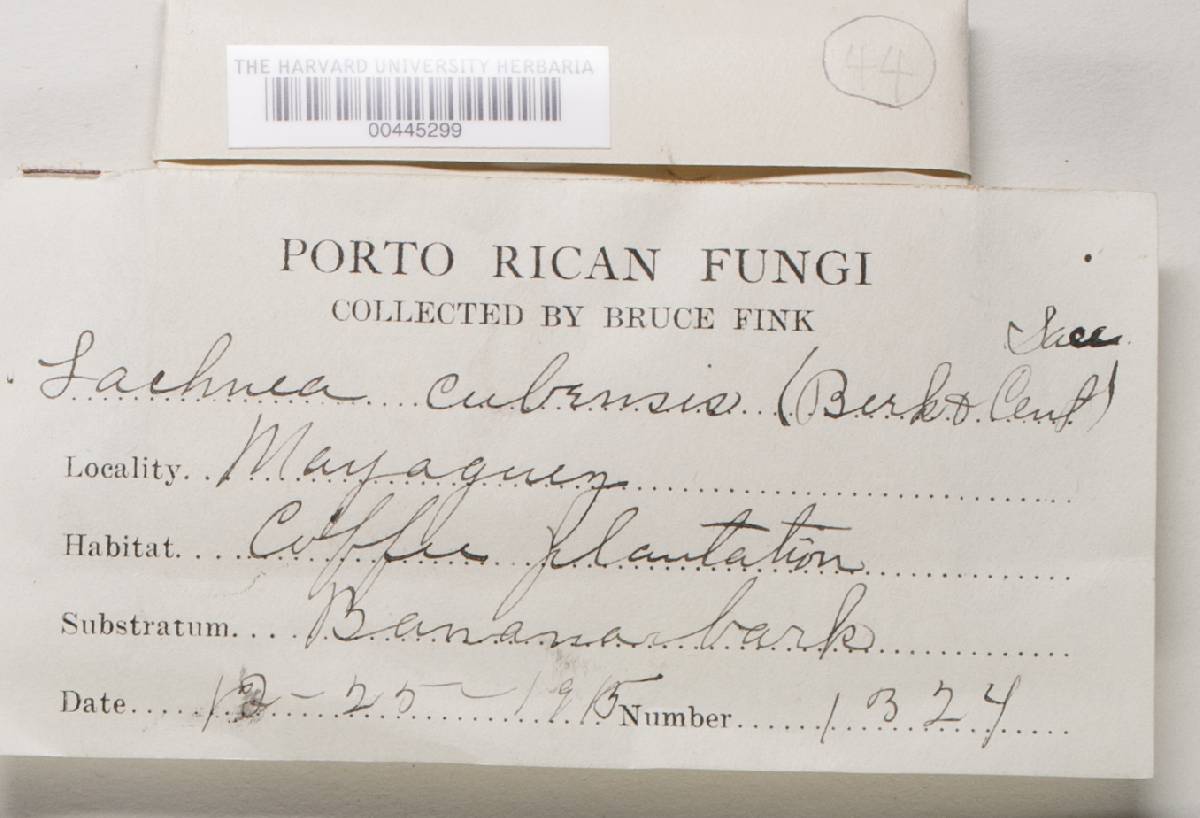 44
THE HARVARD UNIVERSITY HERBARIA
00445299
PORTO RICAN FUNGI
COLLECTED BY BRUCE FINK
Sacc.
Lachnea cubensis (Berk & Curt)
Locality.. Mayaguez
Habitat.... Coffee plantation
Substratum.... Banana bark
Date..... 12-25-1915 Number...... 1324